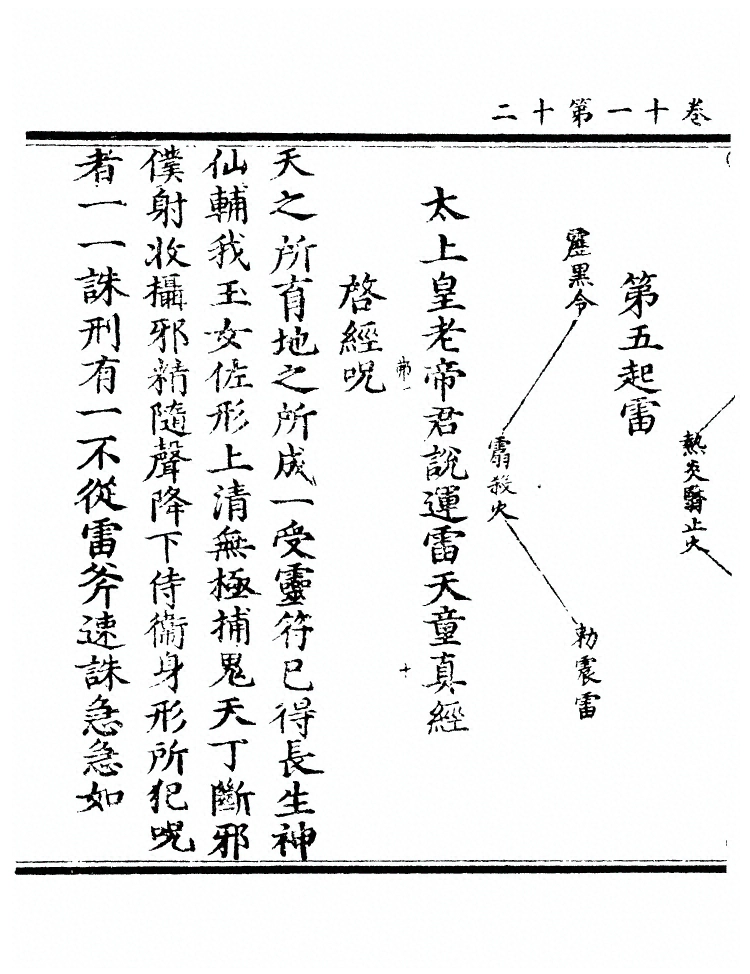 卷十一第十二
熱炎醫止火
第五起雷
黑令
霛殺火
勅震雷
太上皇老帝君說運雷天童真經
十
啓經呪
天之所有地之所成一受靈符巳得長生神
仙輔我玉女佐形上清無極捕鬼天丁斷邪
僕射收攝邪精隨聲降下侍衞身形所犯呪
者一一誅刑有一不從雷斧速誅急急如